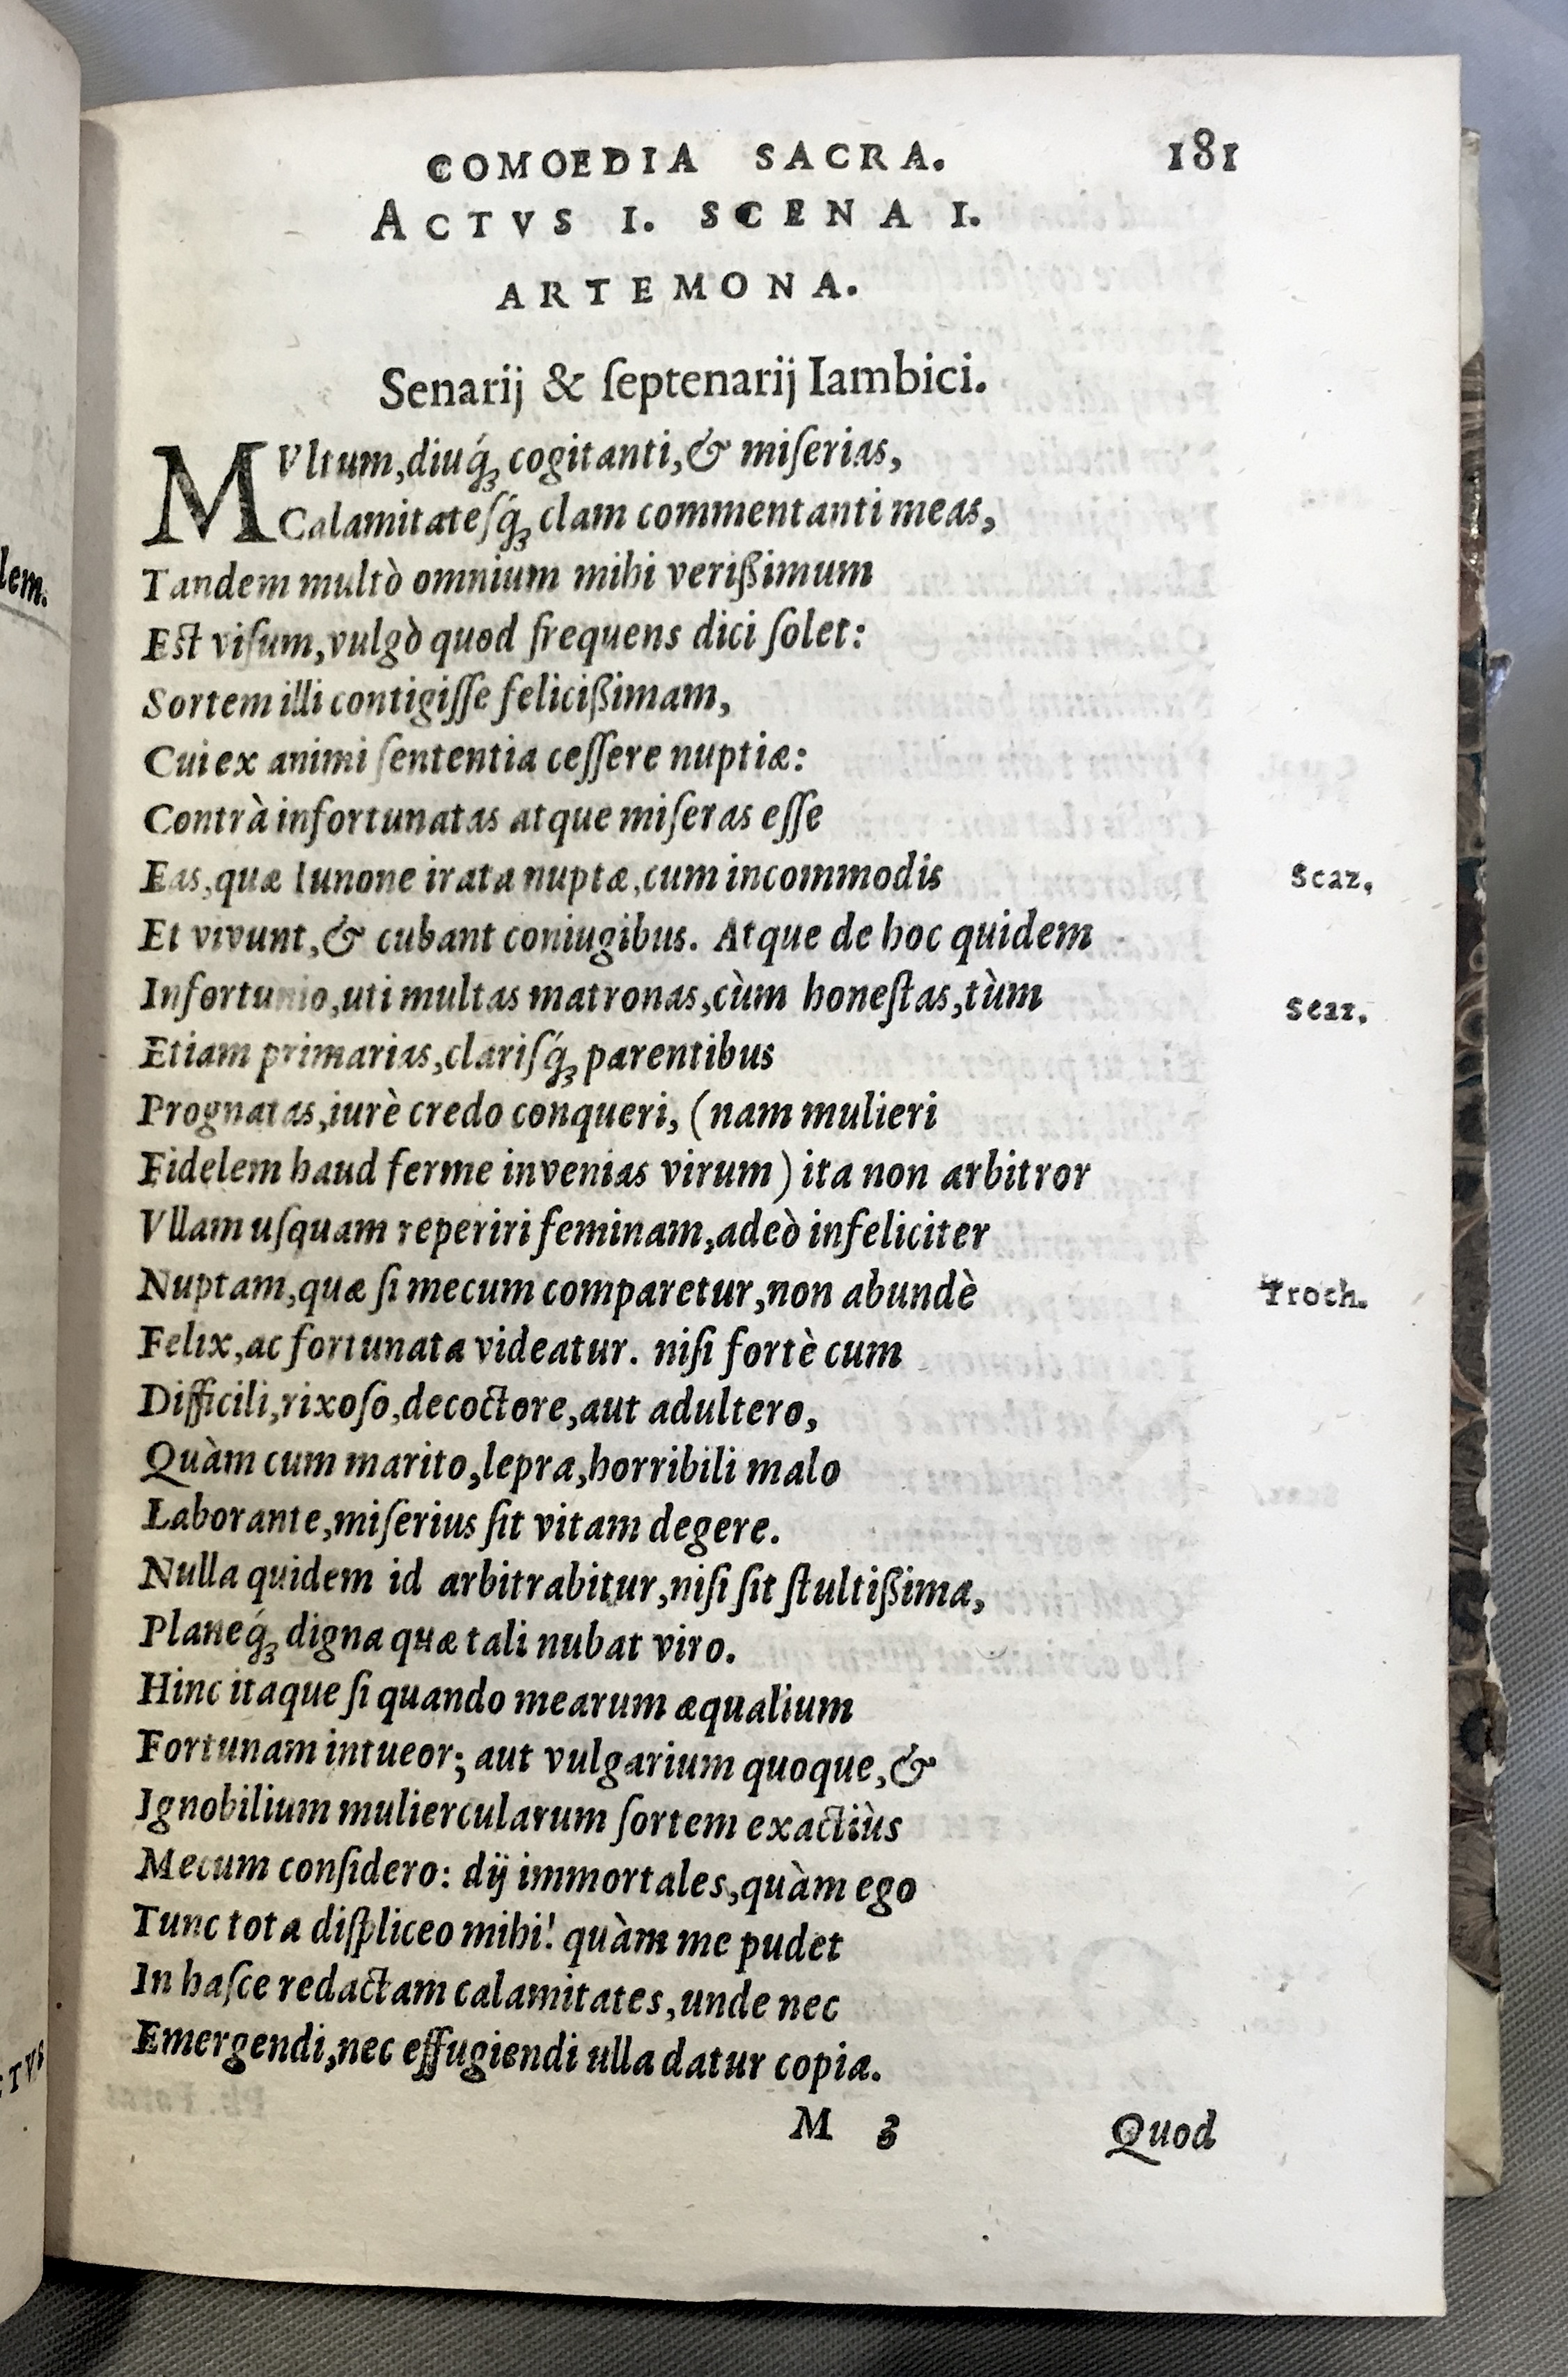 COMOEDIA SACRA. 181
ACTVS I. SCENA I.
ARTEMONA.
Senarij & ſeptenarij Iambici.
MVltum,diuq́ꝫ cogitanti,& miſerias,
Calamitateſq́ꝫ clam commentanti meas,
Tandem multò omnium mihi verißimum
Est viſum,vulgò quod frequens dici ſolet:
Sortem illi contigiſſe felicißimam,
Cui ex animi ſententia ceſſere nuptiæ:
Contrà infortunatas atque miſeras eſſe
Eas,quæ Iunone irata nuptæ,cum incommodis Scaz.
Et vivunt,& cubant coniugibus. Atque de hoc quidem
Infortunio,uti multas matronas,cùm honeſtas,tùm Scaz.
Etiam primarias,clariſq́ꝫ parentibus
Prognatas,iurè credo conqueri, (nam mulieri
Fidelem haud ferme invenias virum) ita non arbitror
Vllam uſquam reperiri feminam,adeò infeliciter
Nuptam,quæ ſi mecum comparetur,non abundè Troch.
Felix,ac fortunata videatur. niſi fortè cum
Difficili,rixoſo,decoctore,aut adultero,
Quàm cum marito,lepra,horribili malo
Laborante,miſerius ſit vitam degere.
Nulla quidem id arbitrabitur,niſi ſit ſtultißima,
Planeq́ꝫ digna quæ tali nubat viro.
Hinc itaque ſi quando mearum æqualium
Fortunam intueor; aut vulgarium quoque,&
Ignobilium muliercularum ſortem exactiùs
Mecum conſidero: dij immortales,quàm ego
Tunc tota diſpliceo mihi! quàm me pudet
In haſce redactam calamitates,unde nec
Emergendi,nec effugiendi ulla datur copia.
M 3 Quod
lem.